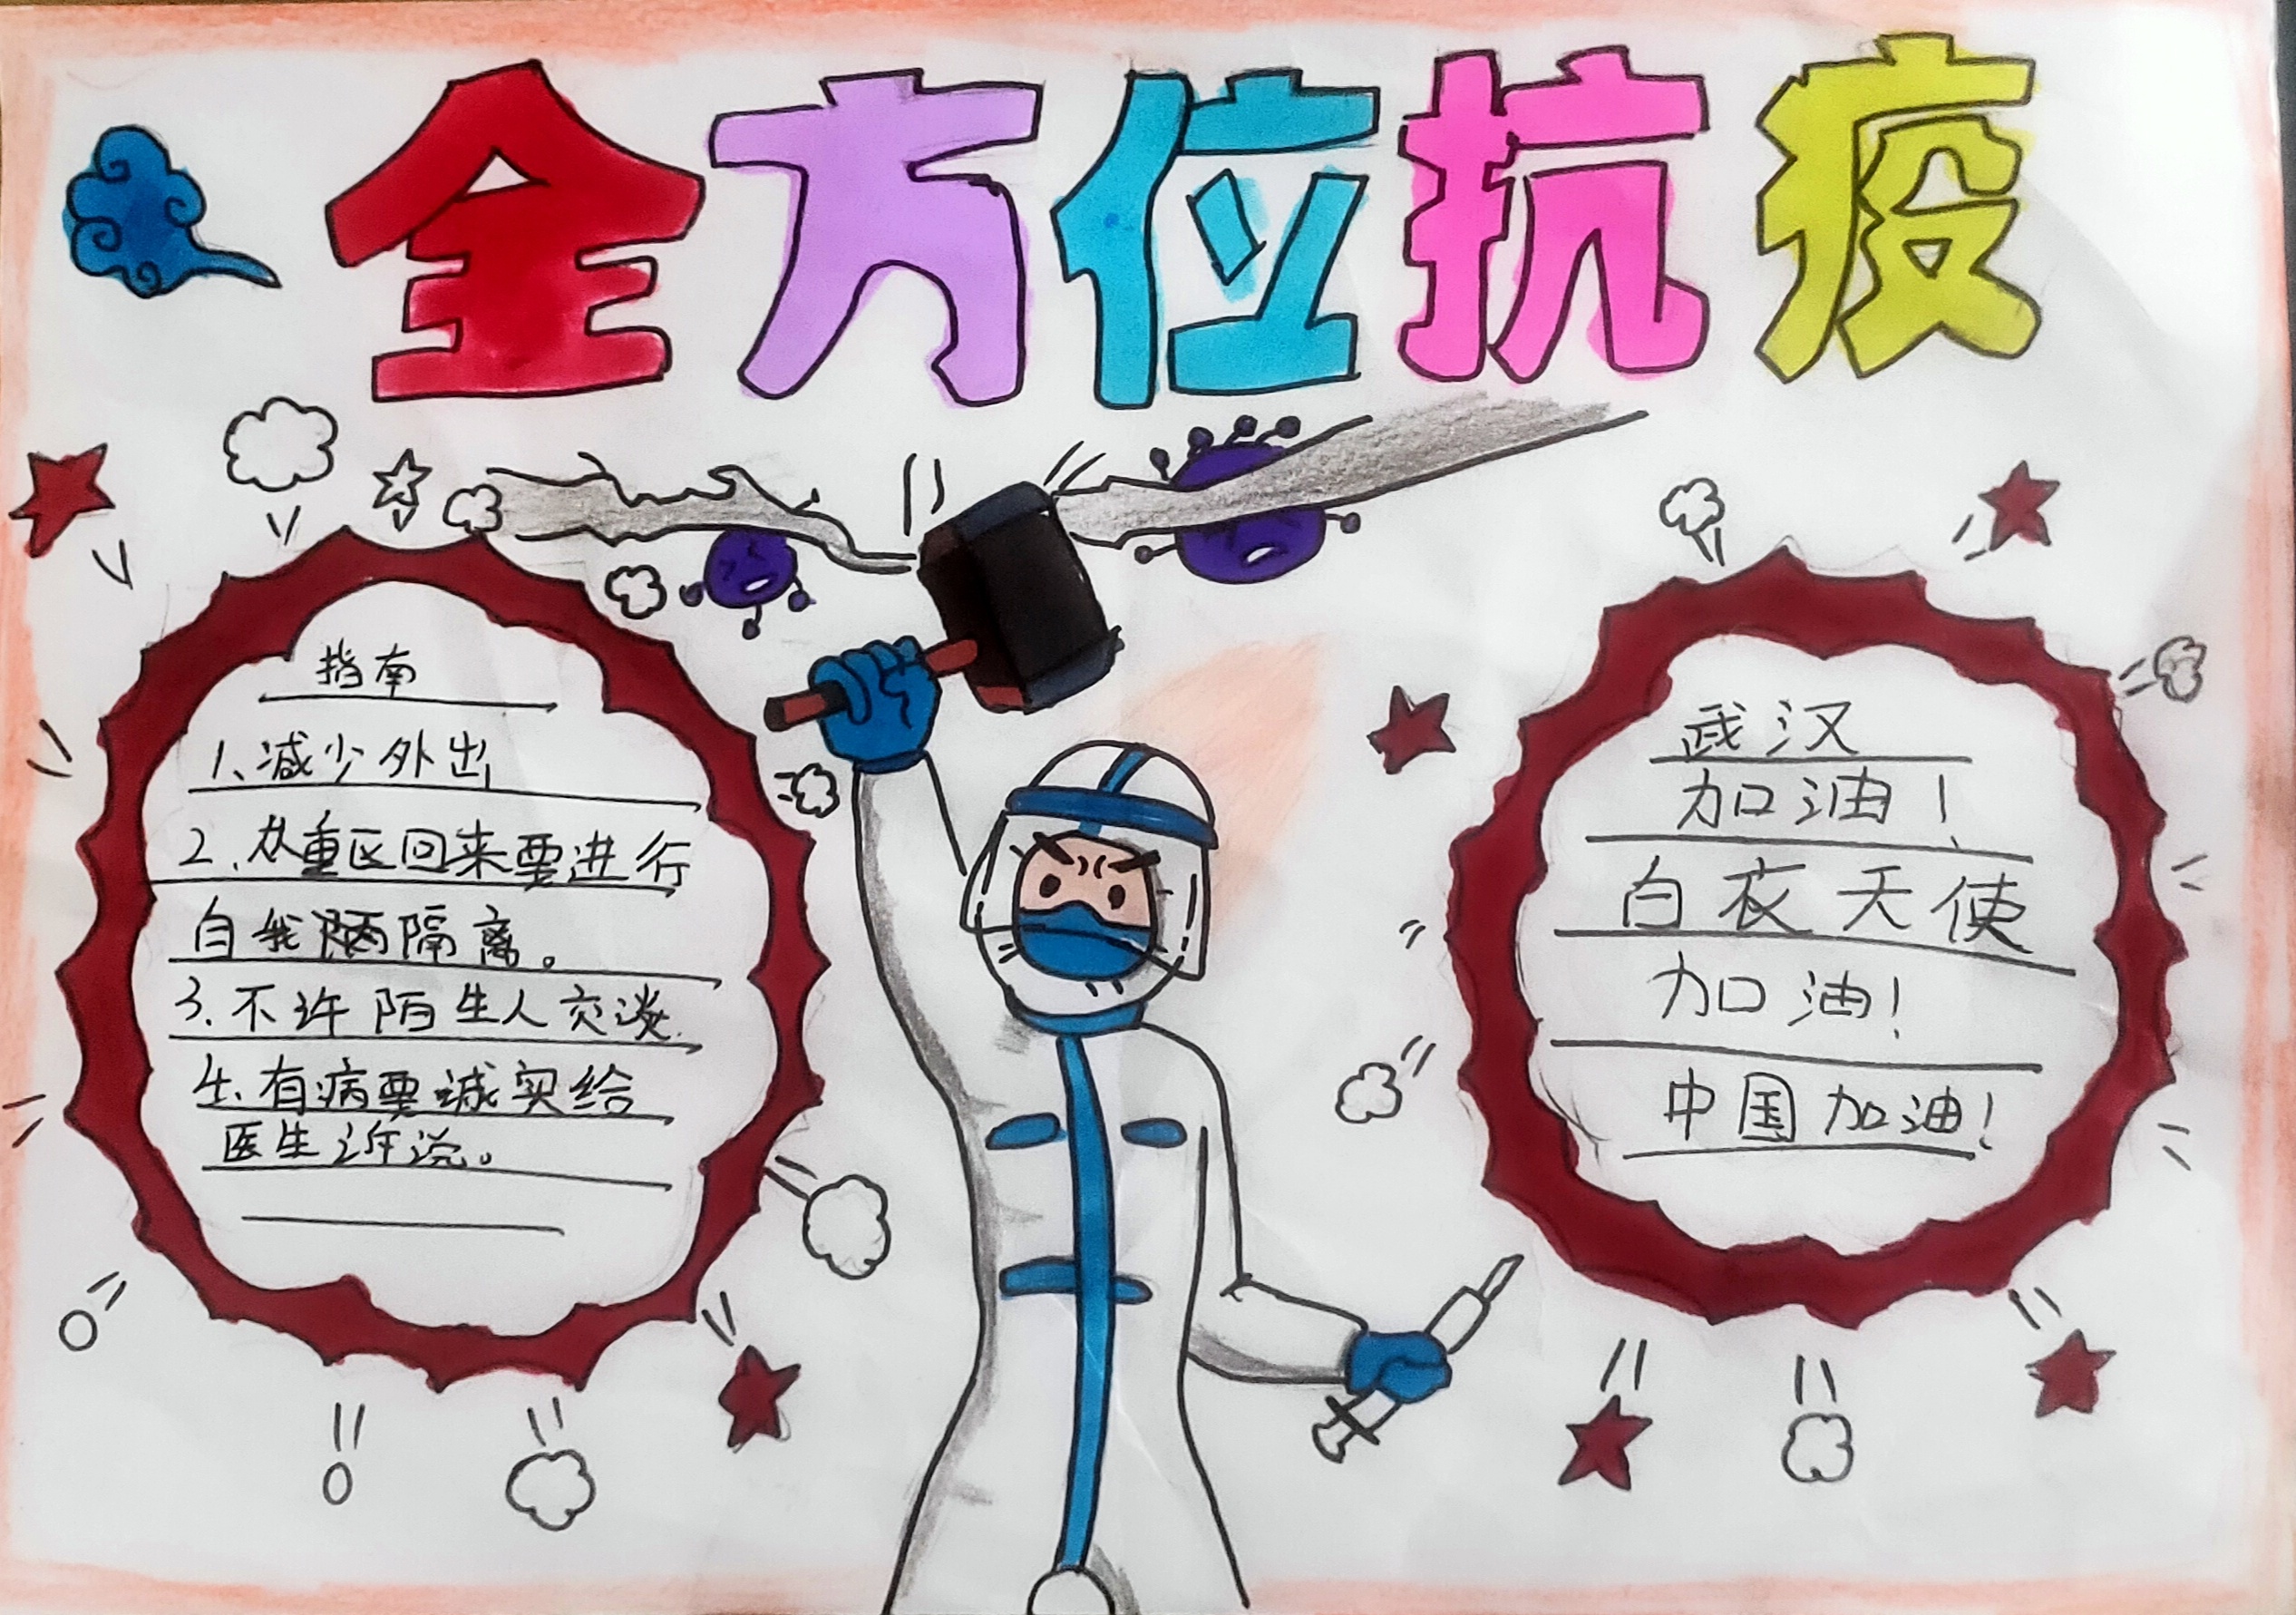 全方位抗疫
指南
1、减少外出
2、从重区回来要进行
自我隔离。
3、不许陌生人交谈.
4、有病要诚实给
医生诉说。
武汉
加油！
白衣天使
加油！
中国加油！